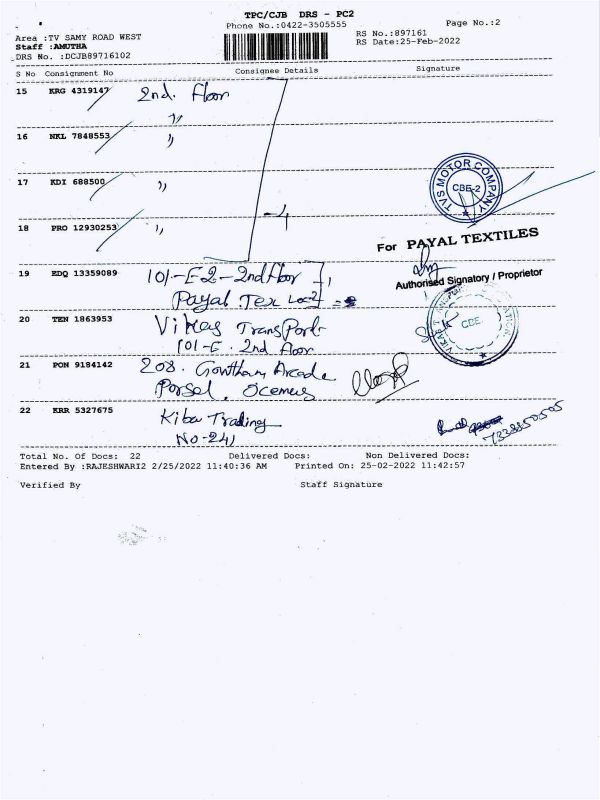 TPC/CJB DRS - PC2
Phone No.:0422-3505555
Page No.:2
Area :TV SAMY ROAD WEST
RS No.:897161
Staff :AMUTHA
RS Date:25-Feb-2022
DRS No. :DCJB89716102
S No Consignment No Consignee Details Signature
15 KRG 4319147 2nd. Floor
16 NKL 7848553 ,,
17 KDI 688500 ,,
TVS MOTOR COMPANY
CBE-2
18 PRO 12930253 ,,
For PAYAL TEXTILES
19 EDQ 13359089 101-E2-2nd Floor
Payal Tex
Authorised Signatory / Proprietor
20 TEN 1863953 Vikas Transport
101-E. 2nd Floor
CBE.
21 PON 9184142 208. Gowtham Arcade
22 KRR 5327675 Kiba Trading
No-241
7338850505
Total No. Of Docs: 22 Delivered Docs: Non Delivered Docs:
Entered By :RAJESHWARI2 2/25/2022 11:40:36 AM Printed On: 25-02-2022 11:42:57
Verified By Staff Signature